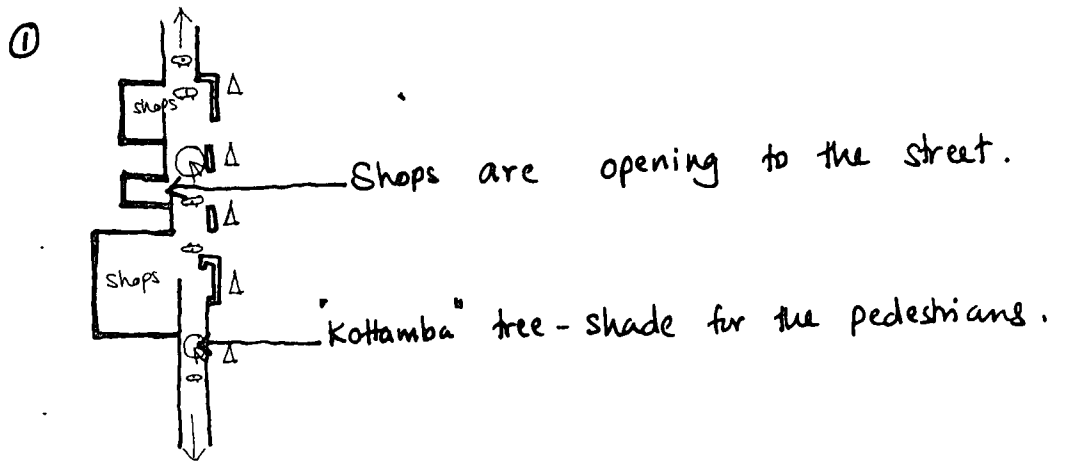 ①
shops
Shops are opening to the street.
shops
"Kottamba" tree - shade for the pedestrians.